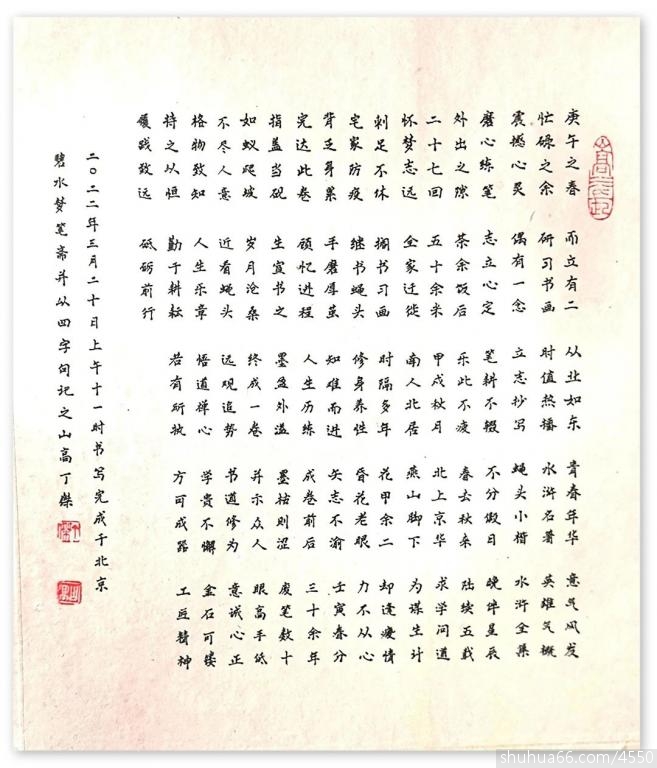 庚午之春 而立有二 从业如东 青春年华 意气风发
忙碌之余 研习书画 时值热播 水浒名著 英雄气概
震撼心灵 偶有一念 立志抄写 蝇头小楷 水浒全集
磨心练笔 志立心定 笔耕不辍 不分假日 晚伴星辰
外出之隙 茶余饭后 乐此不疲 春去秋来 陆续五载
二十七回 五十余米 甲戌秋月 北上京华 求学问道
怀梦志远 全家迁徙 南人北居 燕山脚下 为谋生计
刺足不休 搁书习画 时隔多年 花甲余二 却逢疫情
宅家防疫 继书蝇头 修身养性 昏花老眼 力不从心
背乏身累 手磨厚茧 知难而进 矢志不渝 壬寅春分
完达此卷 顾忆进程 人生历练 成卷前后 三十余年
指盖当砚 生宣书之 墨盈外溢 墨枯则涩 废笔数十
如蚁爬坡 岁月沧桑 终成一卷 并示众人 眼高手低
不尽人意 近看蝇头 远观造势 书道修为 意诚心正
格物致知 人生乐章 悟道禅心 学贵不懈 金石可镂
持之以恒 勤于耕耘 若有所披 方可成器 工匠精神
履践致远 砥砺前行
二〇二二年三月二十日上午十一时书写完成于北京
碧水梦笔斋并以四字句记之山高丁傑
shuhua66.com/4550